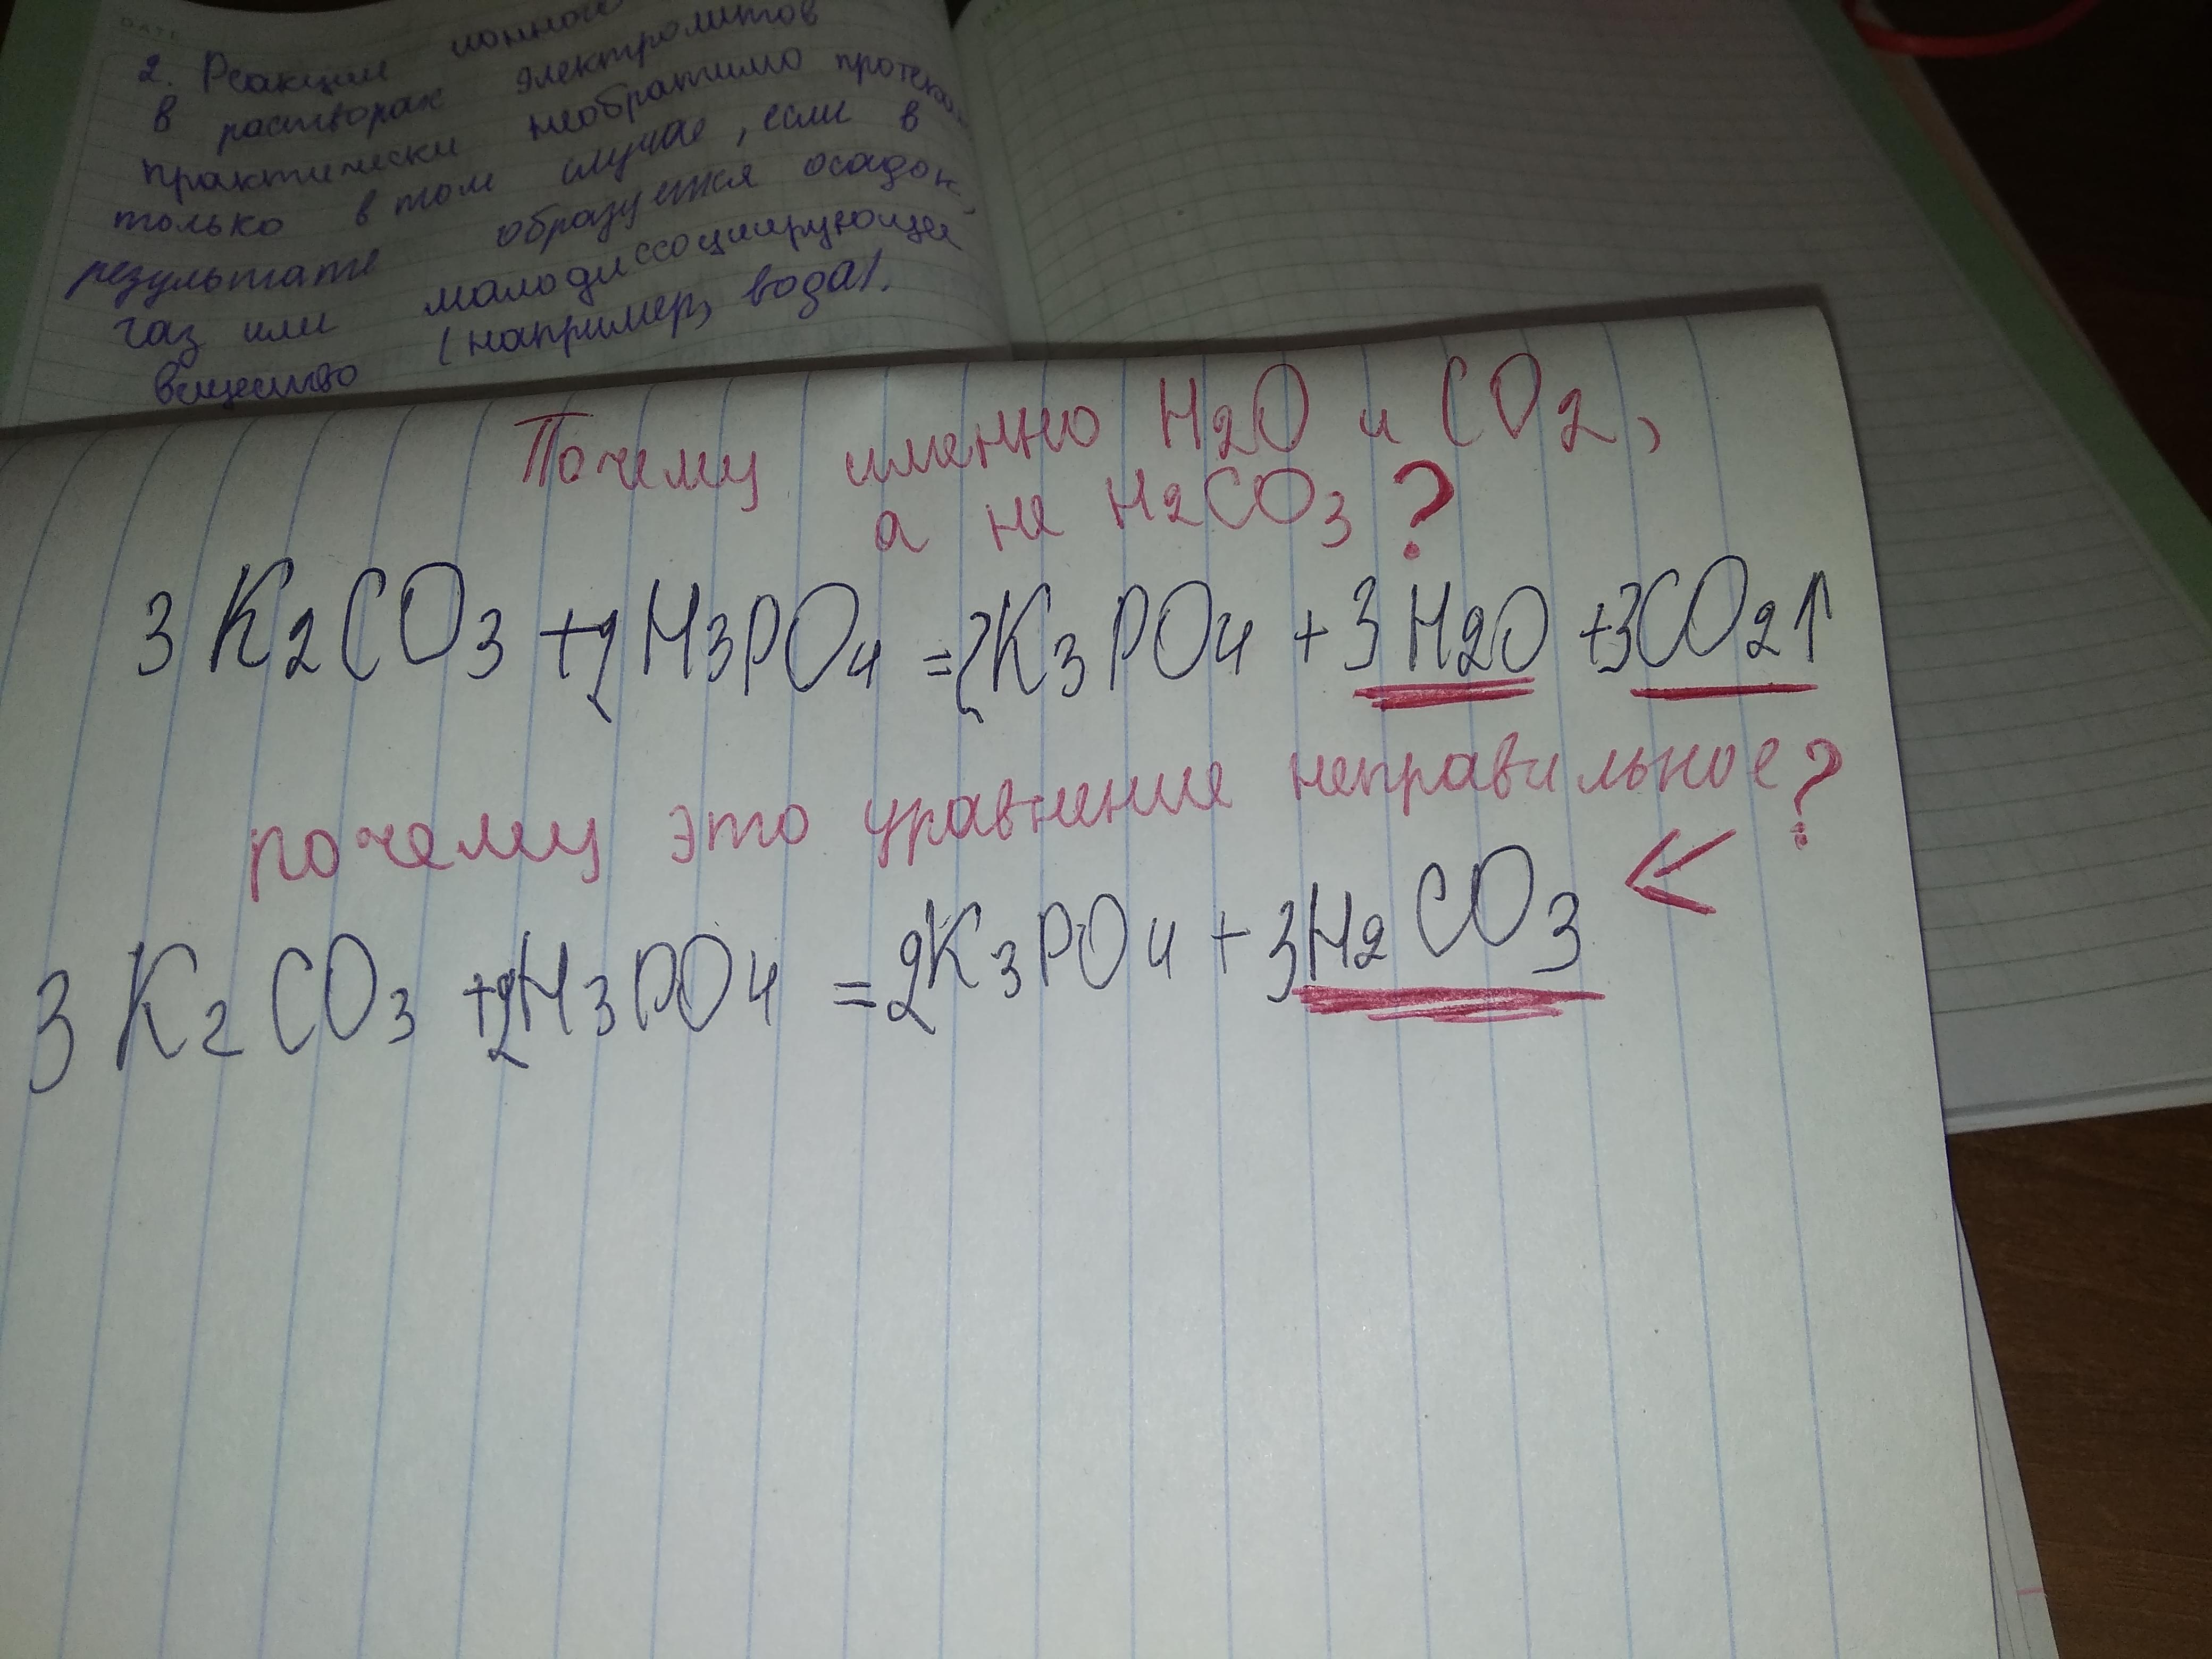 DATE
2. Реакции ионного
в растворах электролитов
практически необратимо протекают
только в том случае, если в
результате образуется осадок,
газ или малодиссоциирующее
вещество (например, вода).
Почему именно H2O и CO2,
а не H2CO3?
3 K2CO3 + 2 H3PO4 = 2K3PO4 + 3 H2O + 3CO2↑
почему это уравнение неправильное?
3 K2CO3 + 2H3PO4 = 2K3PO4 + 3H2CO3